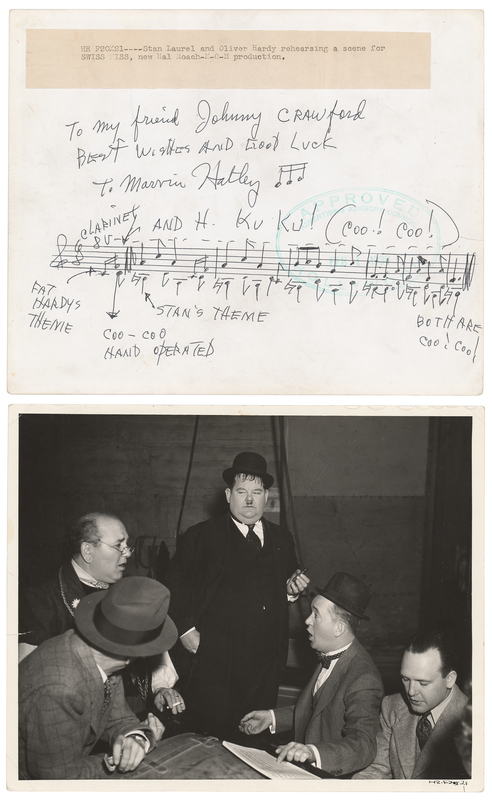 HR F20X21----Stan Laurel and Oliver Hardy rehearsing a scene for
SWISS MISS, new Hal Roach-M-G-M production.
APPROVED
To my friend Johnny CRAWFORD
BEST WISHES AND Good Luck
To Marvin Hatley
CLARINET
8V
AND H. KU KU!
COO! COO!
FAT
HARDYS
THEME
STAN'S THEME
COO-COO
HAND OPERATED
BOTH ARE
COO! COO!